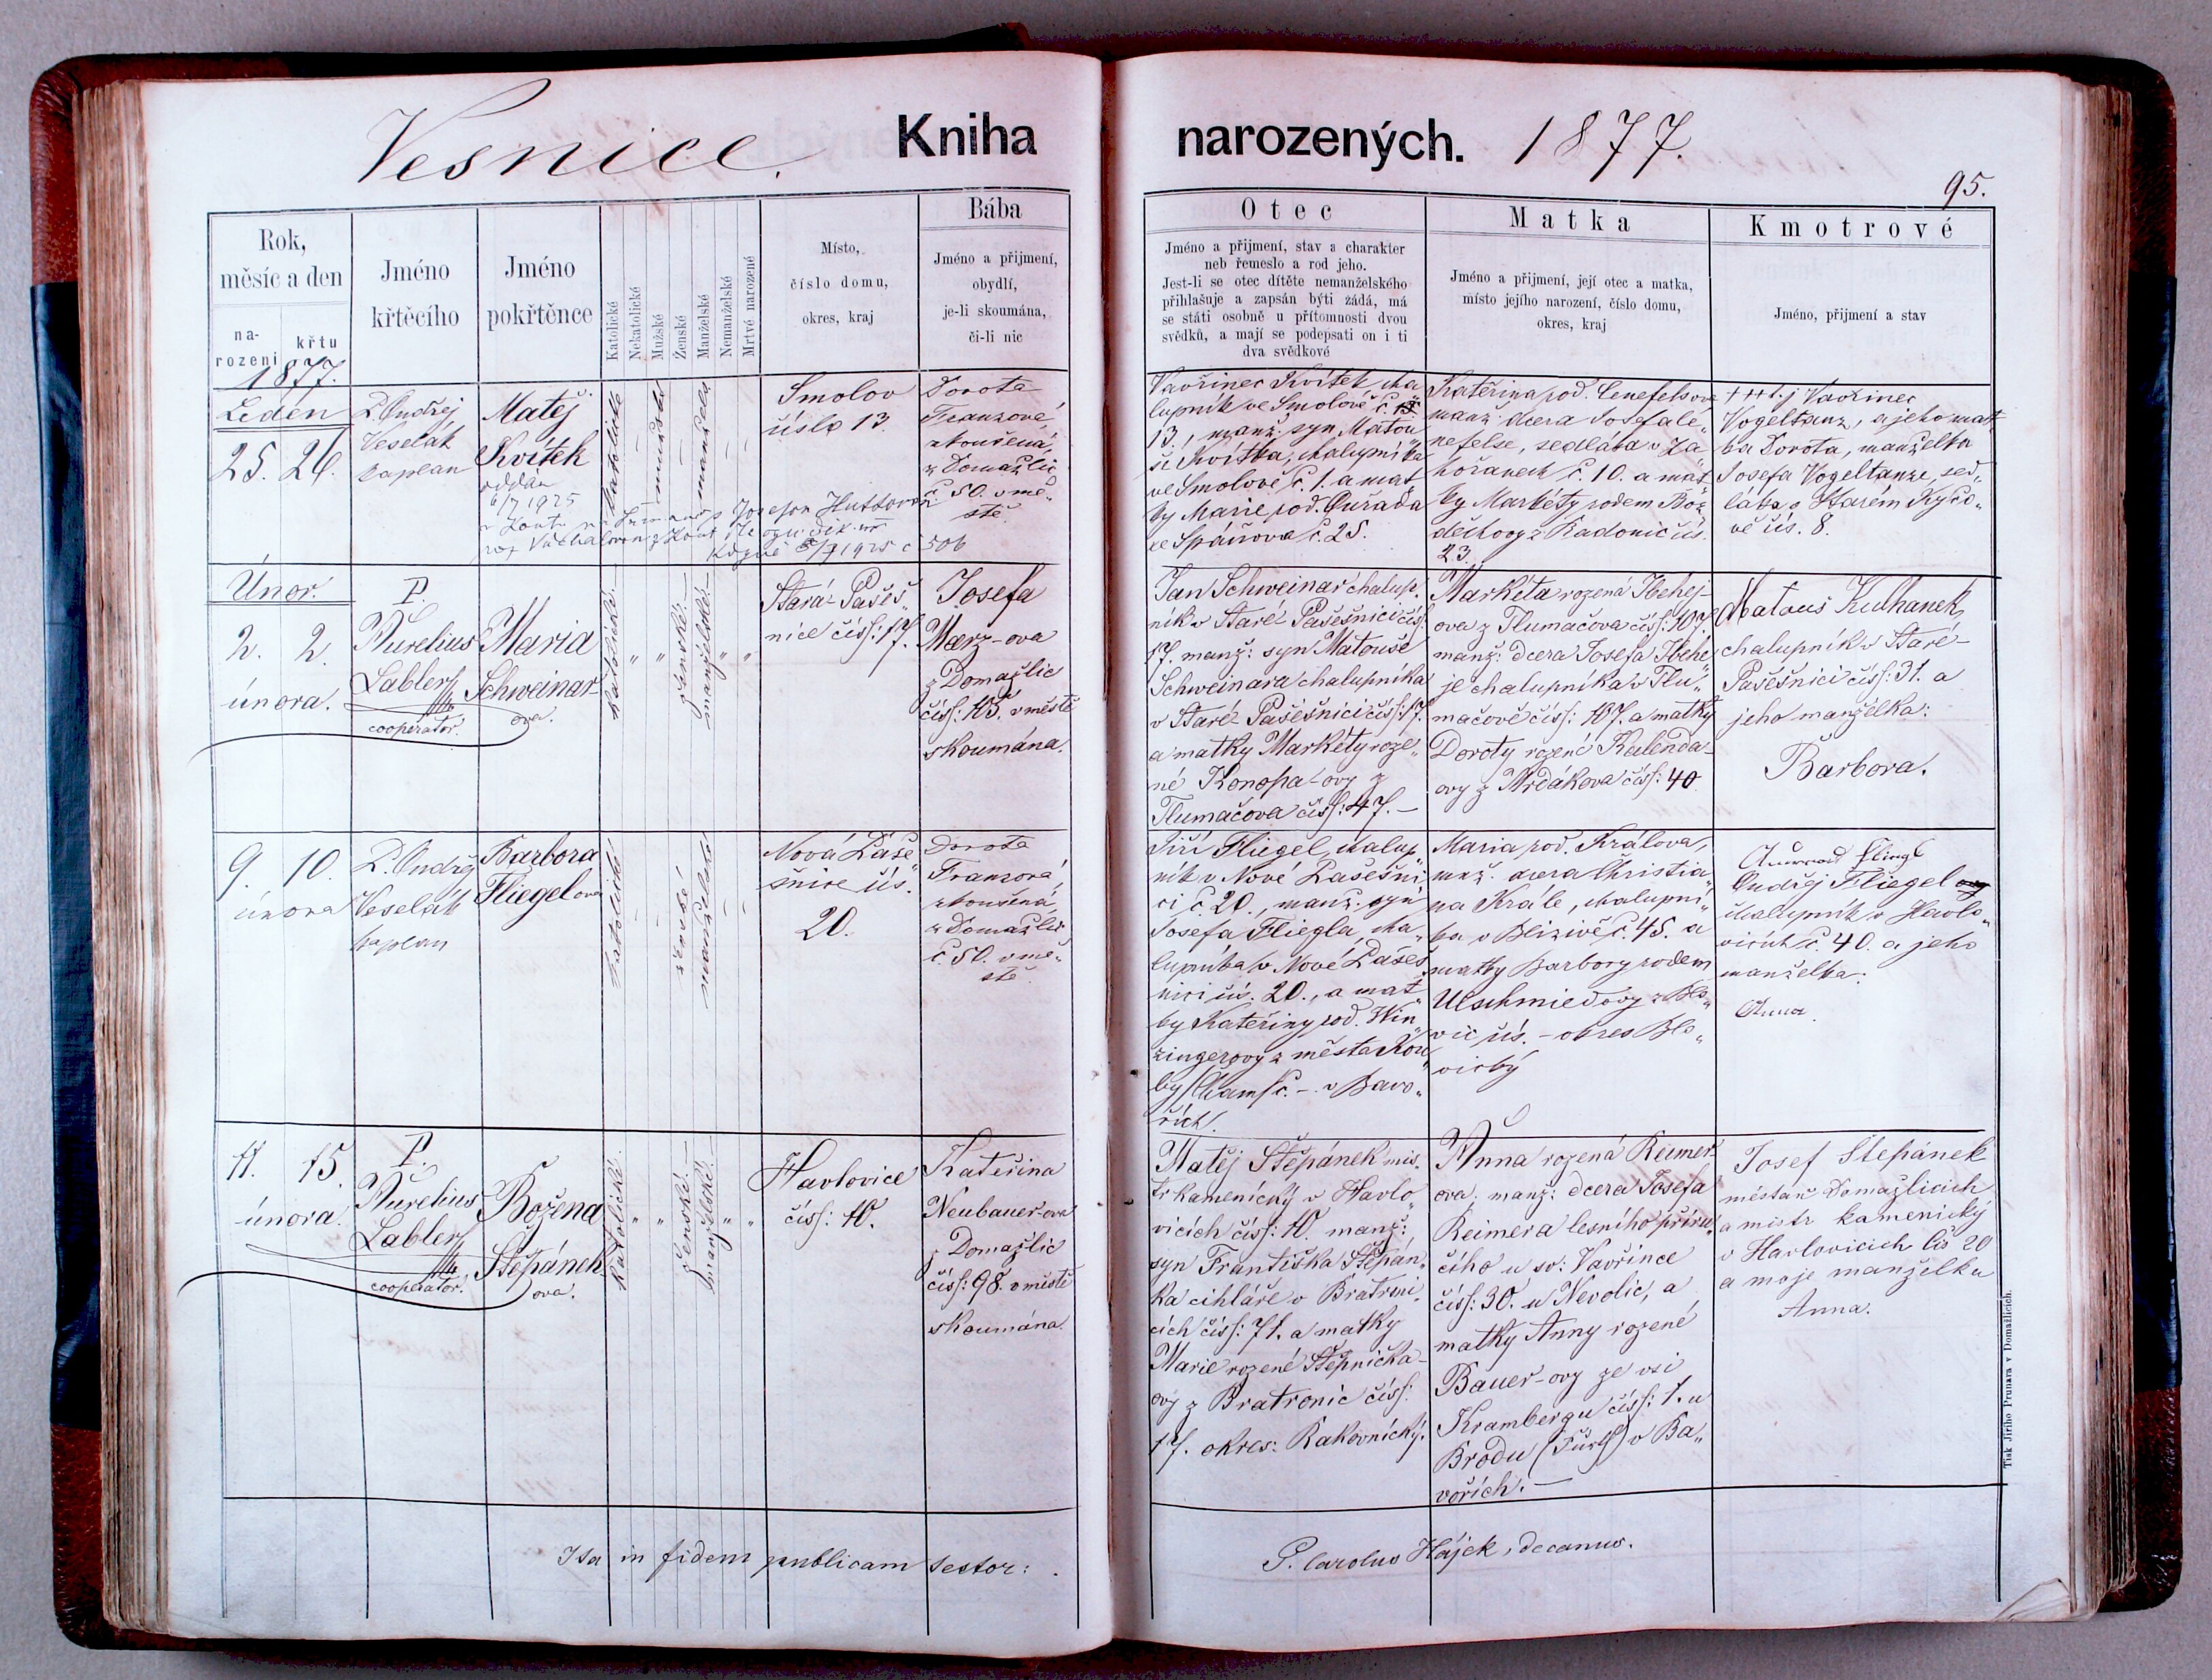 Vesnice.
Kniha
narozených.
1877.
95.
Rok,
měsíc a den
na-
rozeni
křtu
Jméno
křtěcího
Jméno
pokřtěnce
Katolické
Nekatolické
Mužské
Ženské
Manželské
Nemanželské
Mrtvé narozené
Místo,
číslo domu,
okres, kraj
Bába
Jméno a přijmení,
obydlí,
je-li skoumána,
či-li nic
Otec
Jméno a přijmení, stav a charakter
neb řemeslo a rod jeho.
Jest-li se otec dítěte nemanželského
přihlašuje a zapsán býti zádá, má
se státi osobně u přítomnosti dvou
svědků, a mají se podepsati on i ti
dva svědkové
Matka
Jméno a přijmení, její otec a matka,
místo jejího narození, číslo domu,
okres, kraj
Kmotrové
Jméno, přijmení a stav
1877.
Leden
25. 26.
P. Ondřej
Veselák
kaplan
Matěj
Kvítek
oddán
6/7 1925
katolické
mužské
manželské
Smolov
číslo 13.
Dorota
Franzová,
zkoušená,
z Domažlic
č. 50. v mě„
stě.
Vavřinec Kvítek, cha„
lupník ve Smolově č.
13., manž. syn Matou„
še Kvítka, chalupníka
ve Smolově č. 1. a mat„
ky Marie rod. Ouřada
ze Spáňova č. 25.
Kateřina rod.
manž. dcera Josefa Le„
nefelse, sedláka v Za„
hořanech č. 10. a mat„
ky Markéty rodem
z Radonic čís.
23.
+++ Vavřinec
Vogeltanz, a jeho mat„
ka Dorota, manželka
Josefa Vogeltanze, sed„
láka v Starém Kyčo„
vě čís. 8.
Únor.
2. 2.
února.
P.
Aurelius
Labler
cooperator.
Maria
Schweinar-
ova.
katolické
ženské
manželské
Stará Pašeš„
nice čísl: 17.
Josefa
Marz-ova
z Domažlic
čísl: 103. v městě
skoumána.
Jan Schweinar chalup„
ník v Staré Pašešnici čísl:
17. manž: syn Matouše
Schweinara chalupníka
v Staré Pašešnici čísl: 17.
a matky Markéty roze„
né Konopa-ovy z
Tlumačova čísl: 47. —
Markéta rozená
ova z Tlumačova čísl: 107.
manž: dcera Josefa
je chalupníka v Tlu„
mačově čísl: 107. a matky
Doroty rozené Kalenda-
ovy z Mrdákova čísl: 40
Matouš Kulhanek,
chalupník v Staré
Pašešnici čísl: 31. a
jeho manželka:
Barbora.
9. 10.
února
P. Ondřej
Veselák
kaplan
Barbora
Fliegelova
katolické
ženské
manželské
Nová Paše„
šnice čís.
20.
Dorota
Franzová,
zkoušená,
z Domažlic
č. 50. v mě„
stě.
Jiří Fliegel, chalup„
ník v Nové Pašešni„
ci č. 20., manž. syn
Josefa Fliegla, cha„
lupníka v Nové Pašeš„
nici čís. 20., a mat„
ky Kateřiny rod. Win„
zingerovy z města Kou„
by /Cham/ č. – v Bavo„
řích.
Maria rod. Králova,
manž. dcera Christia„
na Krále, chalupní„
ka v Blizivě č. 45. a
matky Barbory rodem
Ulschmiedovy z Blo„
vic čís. – okres Blo„
vický
Ondřej Fliegel
chalupník v Havlo„
vicích č. 40. a jeho
manželka:
Anna.
11. 15.
února.
P.
Aurelius
Labler
cooperator.
Božena
Štěpánek
ová.
katolické
ženské
manželské
Havlovice
čísl: 10.
Kateřina
Neubauer-ova
z Domažlic
čísl: 98. v městě
skoumána.
Matěj Štěpánek mis„
tr kamenický v Havlo„
vicích čísl: 10. manž:
syn Františka Štěpán„
ka cihláře v Bratroni„
cích čísl: 71. a matky
Marie rozené Štěpnička-
ový z Bratronic čísl:
17. okres: Rakovnický.
Anna rozená Reimer-
ova, manž: dcera Josefa
Reimera lesního příru„
čího u sv: Vavřince
čísl: 30. u Nevolic, a
matky Anny rozené
Bauer-ovy ze vsi
Krambergu čísl: 1. u
Brodu (Furth) v Ba„
vořích. —
Josef Štěpánek
měšťan Domažlicích
a mistr kamenický
v Havlovicich čis 20
a moje manželka
Anna.
Ita in fidem publicam testor:
P. Carolus Hájek, decanus.
Tisk Jiřího Prunara v Domažlicích.